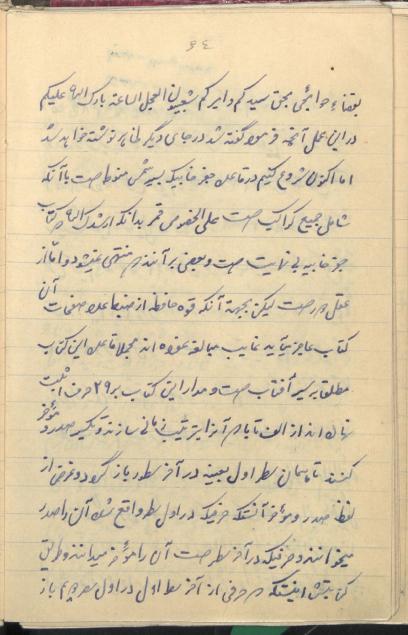 ٦٤
بقضاء حوائجی بحق سیدکم و امیرکم شمعیون العجل الساعة بارک الله علیکم
در این عمل آنچه فرموده گفته شد در جای دیگر نمانی بر نوشته خواهد شد
اما اکنون شروع کنیم در قاعده جفر خابیه که بسیر شمس منوط است با آنکه
شامل جمیع کواکب است علی الخصوص قمر بدانکه ارشدک الله کتاب
جفر خابیه بی نهایت است و بعضی برآنند منتهی نمیشود و اما از
عقل دور است لیکن بجهة آنکه قوه حافظه از ضبط اعداد صفحات آن
کتاب عاجز میآید بغایت مبالغه نموده اند مجملا قاعده این کتاب
مطلقا بر سیر آفتاب است و مدار این کتاب بر ٢٩ حرف
نهاده اند از الف تا یا آنرا بترتیب زمانی سازند و تکسیر صدر و مؤخر
کنند تا همان سطر اول بعینه در آخر سطور باز گردد و غرض از
لفظ صدر و مؤخر آنستکه حرفیکه در اول سطر واقع شده آن را صدر
میخوانند و حرفیکه در آخر سطر است آن را مؤخر میدانند و طریق
کتابتش اینستکه حرفی از آخر سطر اول در اول سطر دویم باز